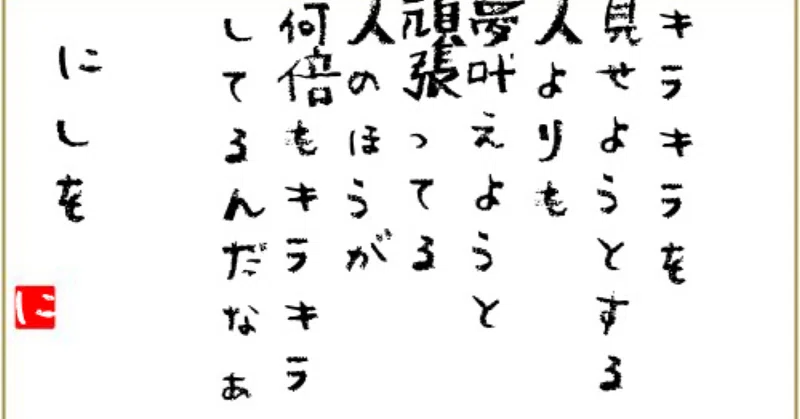 キラキラを
見せようとする
人よりも
夢叶えようと
頑張ってる
人のほうが
何倍もキラキラ
してるんだなぁ
にしを
に